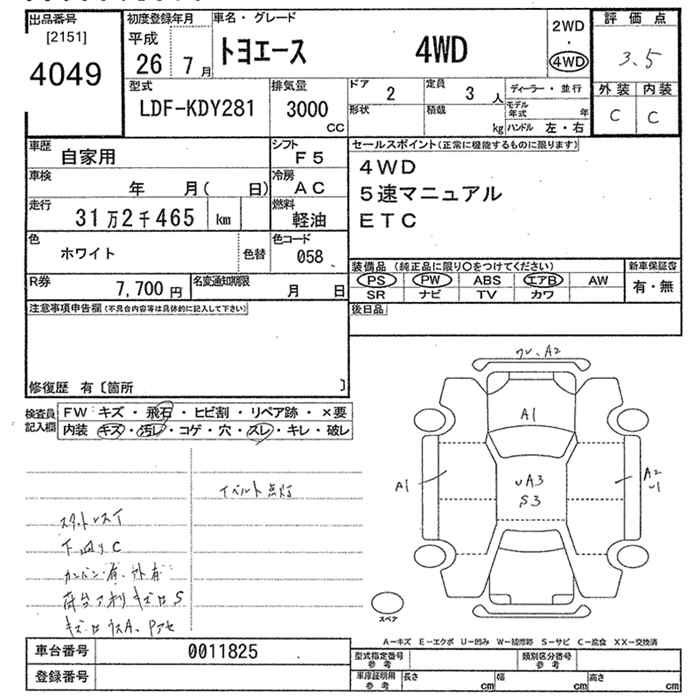 出品番号
[2151]
4049
初度登録年月
平成
26 7月
車名・グレード
トヨエース 4WD
2WD
・
4WD
評価点
3.5
外装 内装
C C
型式
LDF-KDY281
排気量
3000
CC
ドア 2
定員 3 人
形状
積載 kg
ディーラー・並行
モデル年式 年
ハンドル 左・右
車歴
自家用
シフト
F5
車検 年 月( 日)
冷房
AC
走行
31万2千465 km
燃料
軽油
色
ホワイト
色替
色コード
058
R券
7,700円
名変通知期限
月 日
セールスポイント(正常に機能するものに限ります)
4WD
5速マニュアル
ETC
装備品 (純正品に限り〇をつけてください)
PS PW ABS エアB AW
SR ナビ TV カワ
新車保証書
有・無
後日品
注意事項申告欄(不具合内容等は具体的に記入して下さい)
修復歴 有〔箇所 〕
検査員記入欄
FW キズ・飛石・ヒビ割・リペア跡・×要
内装 キズ・汚レ・コゲ・穴・スレ・キレ・破レ
イベルト点灯
スタットレスタイ
下廻りC
A2
A1
UA3
S3
A1
A2
U1
スペア
A－キズ E－エクボ U－凹み W－補修跡 S－サビ C－腐食 XX－交換済
車台番号 0011825
登録番号
型式指定番号
参考
類別区分番号
参考
車庫証明用
参考
長さ cm
幅 cm
高さ cm